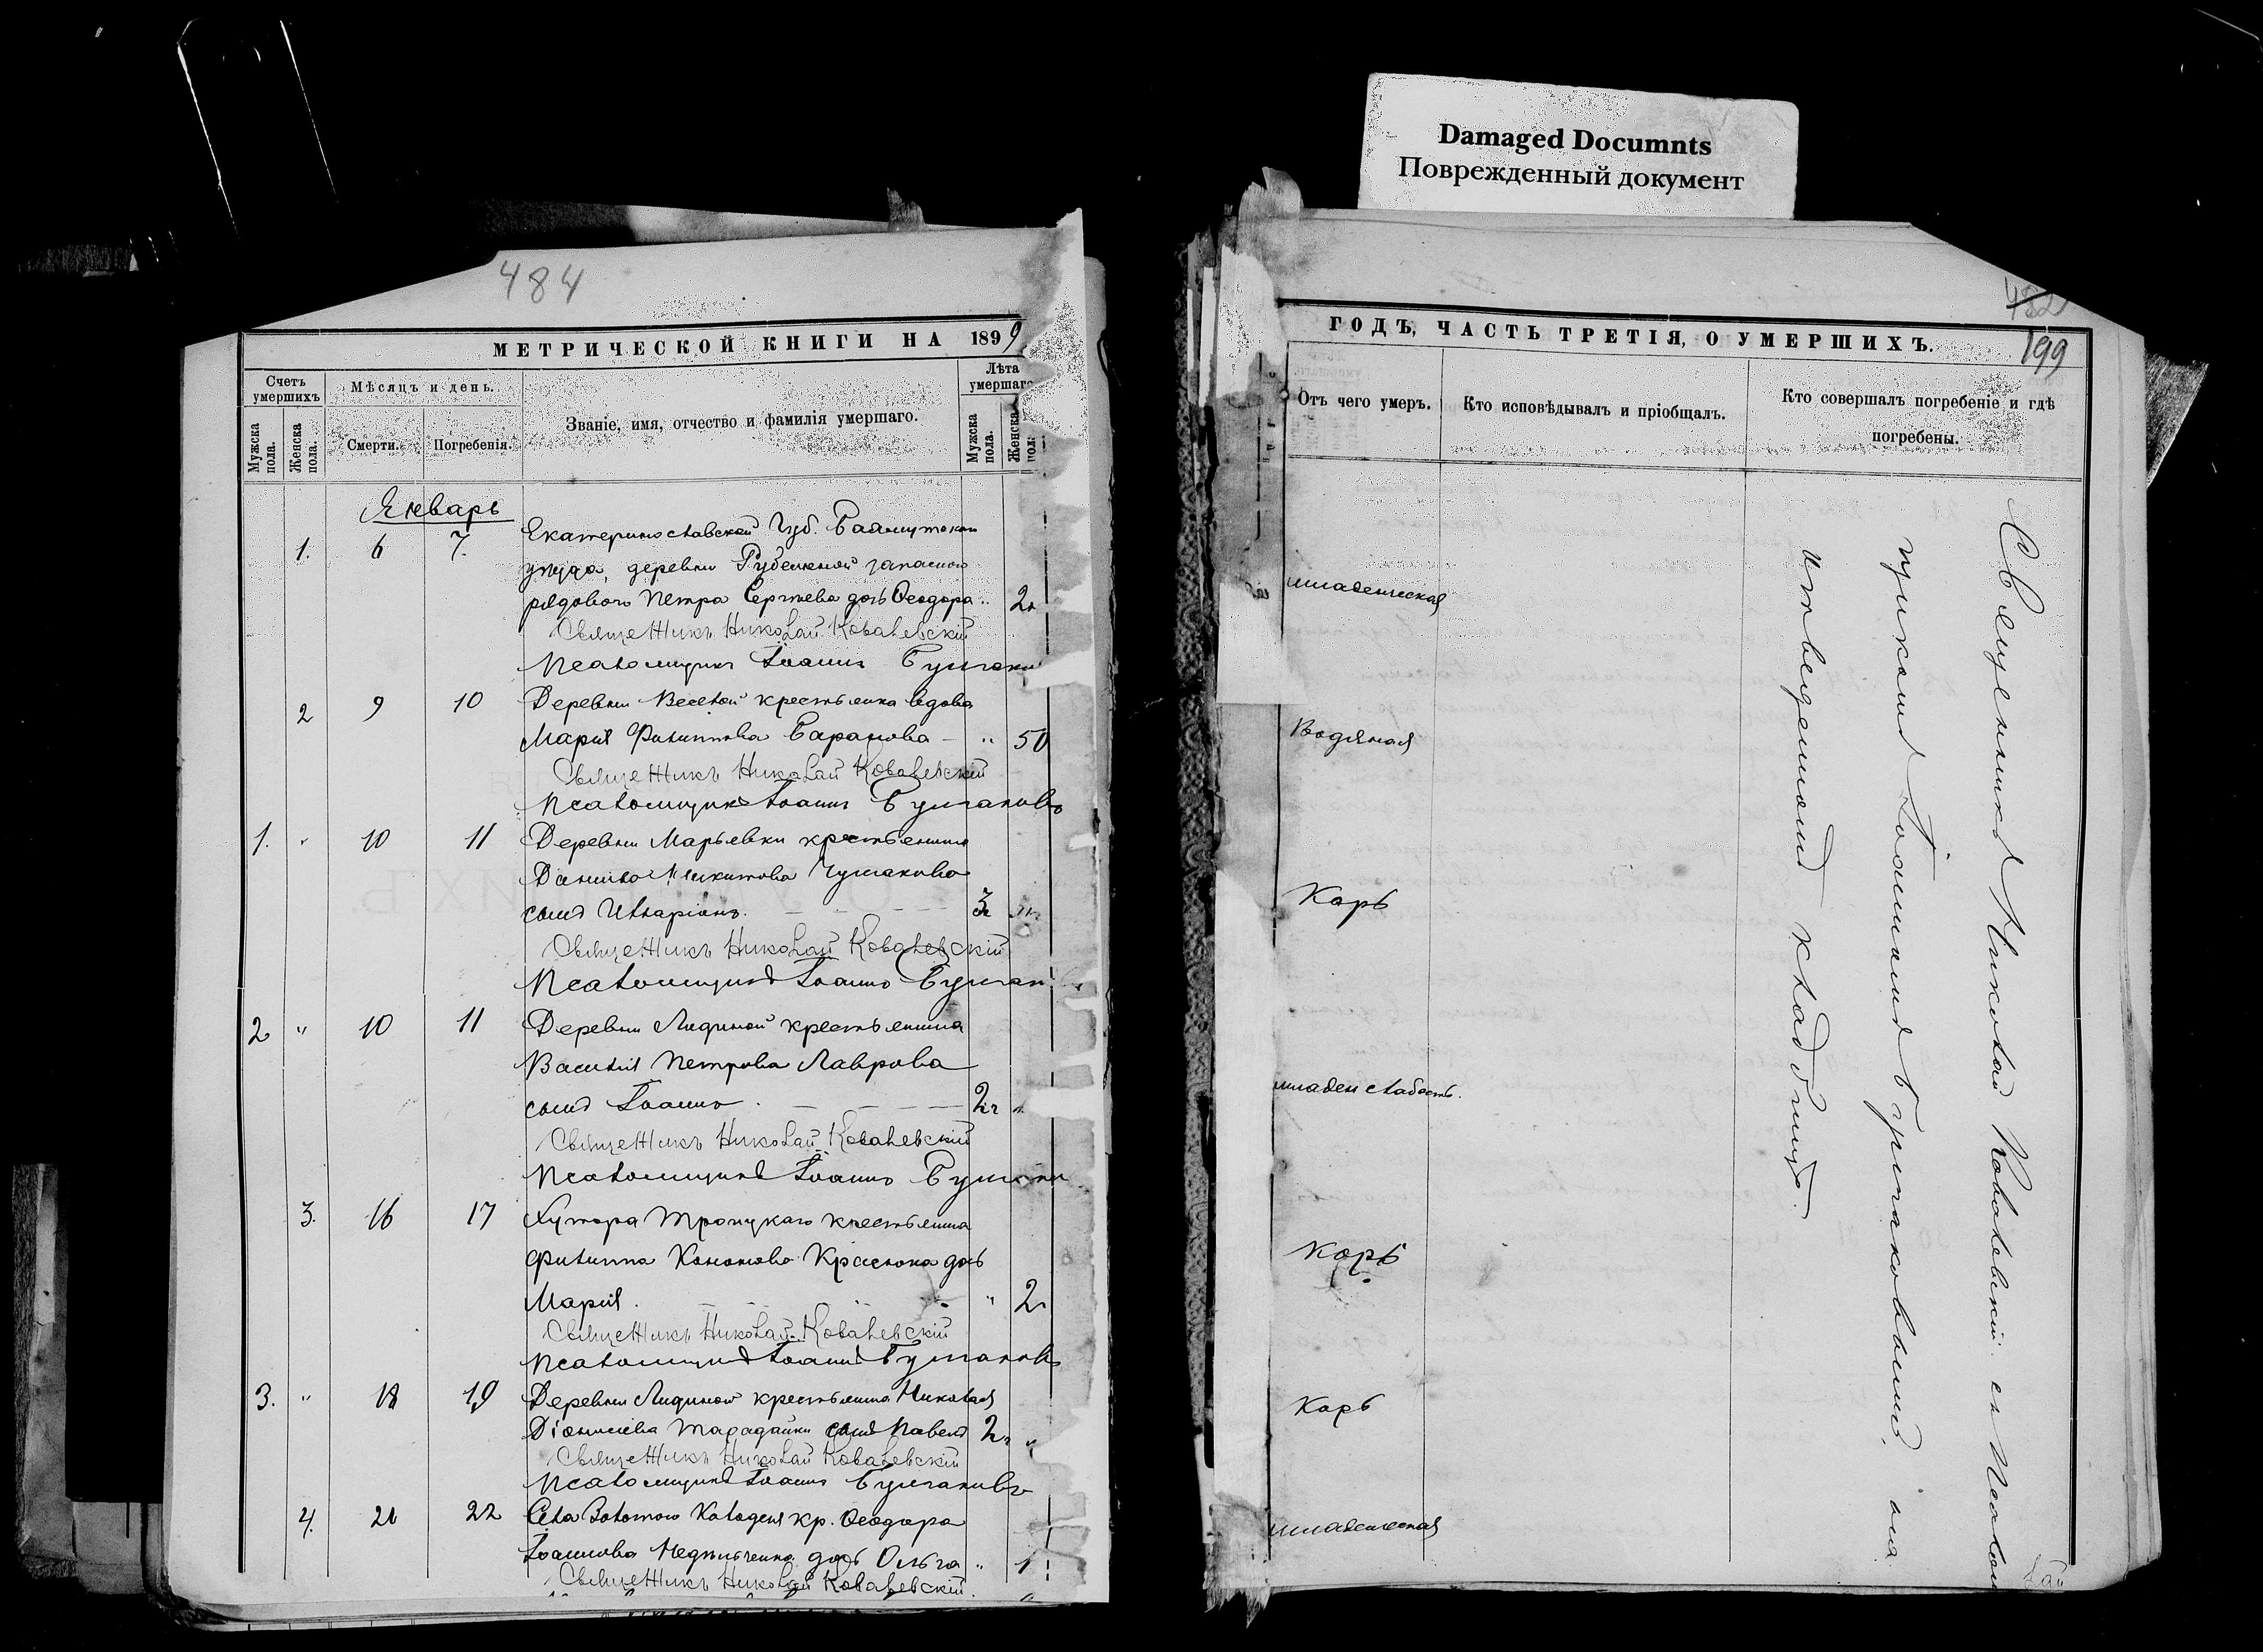 Damaged Documnts
Поврежденный документ
484
МЕТРИЧЕСКОЙ КНИГИ НА 1899
Счетъ умершихъ
Мѣсяцъ и день.
Званіе, имя, отчество и фамилія умершаго.
Лѣта умершаго
Мужска пола.
Женска пола.
Смерти.
Погребенія.
Мужска пола.
Женска пола.
Январь
1. 6 7. Екатеринославской Губ. Бахмутскаго
уѣзда, деревни Рубежной запасного
рядового Петра Сергѣева дочь Ѳеодора „ 2
Священникъ Николай Ковалевскій
Псаломщикъ Іоаннъ
2 9 10 Деревни Веселой крестьянка вдова
Марія Филиппова Баранова — „ 50
Священникъ Николай Ковалевскій
Псаломщикъ Іоаннъ
1. „ 10 11 Деревни Марьевки крестьянина
Даніила Никитова Чумакова
сынъ Иларіонъ. — — — 3
Священникъ Николай Ковалевскій
Псаломщикъ Іоаннъ
2 „ 10 11 Деревни Лидиной крестьянина
Василія Петрова Лаврова
сынъ Іоаннъ. — — — 2
Священникъ Николай Ковалевскій
Псаломщикъ Іоаннъ
3. 16 17 Хутора Троицкаго крестьянина
Филиппа Кононова дочь
Марія. „ 2
Священникъ Николай Ковалевскій
Псаломщикъ Іоаннъ
3. „ 18 19 Деревни Лидиной крестьянина Николая
Діонисіева Тарадайки сынъ Павелъ 2 „
Священникъ Николай Ковалевскій
Псаломщикъ Іоаннъ
4. 22 Села кр. Ѳеодора
Іоаннова дочь Ольга „ 1
Священникъ Николай Ковалевскій
482
199
ГОДЪ, ЧАСТЬ ТРЕТІЯ, О УМЕРШИХЪ.
Отъ чего умеръ.
Кто исповѣдывалъ и пріобщалъ.
Кто совершалъ погребеніе и гдѣ погребены.
младенческая
Водяная
Корь
младен слабость.
Корь
Корь
младенческая
Священникъ Николай Ковалевскій съ Псалом
щикомъ Іоанномъ на
отведенномъ кладбищѣ.